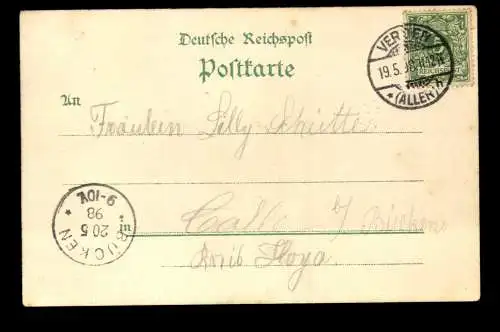 Deutsche Reichspost
Postkarte
VERDEN
19.5.98
(ALLER)
An
Fräulein Lilly Schütte
9-10V.
98
20 5
BÜCKEN
in
Calle b/ Bücken
Kreis Hoya.